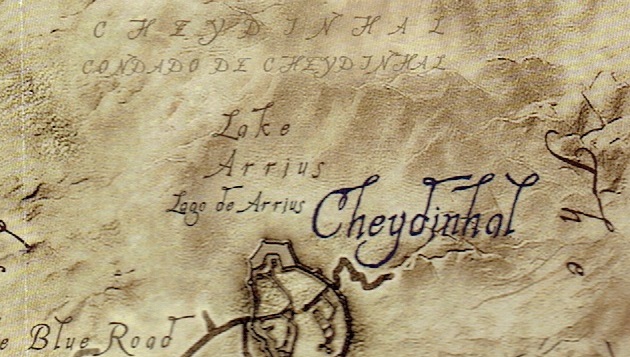 CHEYDINHAL
CONDADO DE CHEYDINHAL
Lake
Arrius
Lago de Arrius
Cheydinhal
The
Blue Road